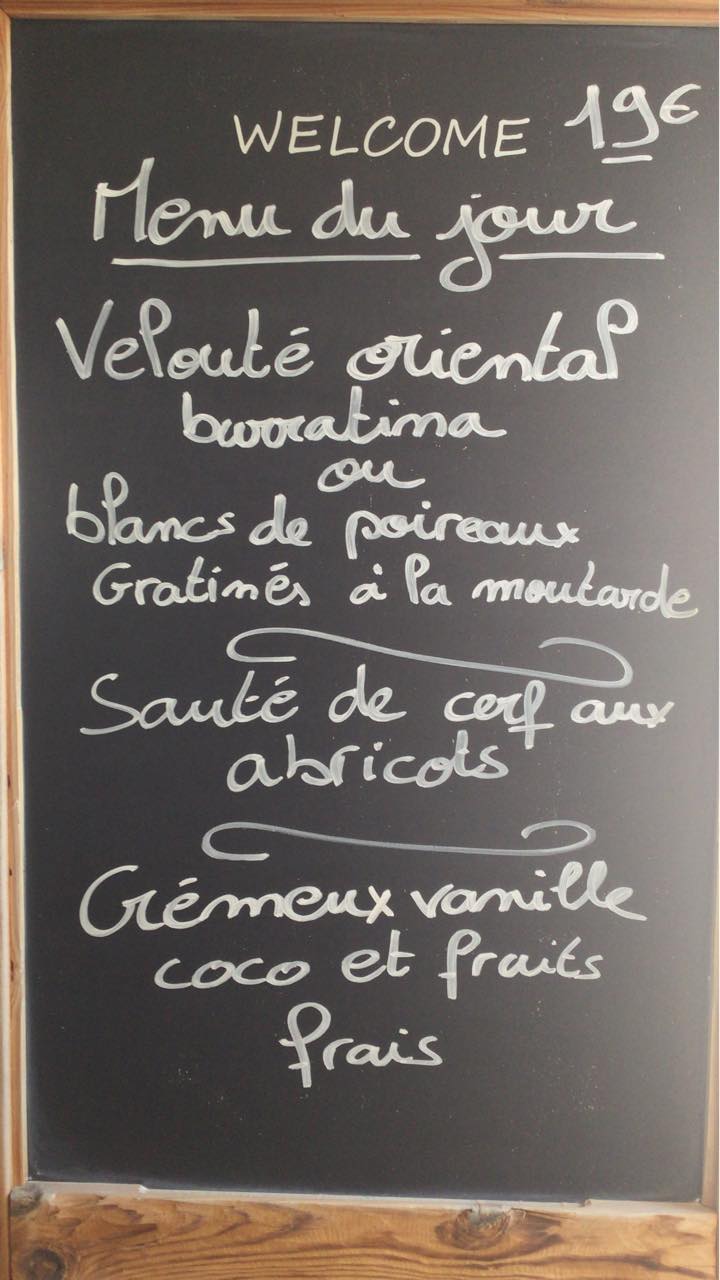 WELCOME 19€
Menu du jour
Velouté oriental
burratina
ou
blancs de poireaux
Gratinés à la moutarde
Sauté de cerf aux
abricots
Crémeux vanille
coco et fruits
frais